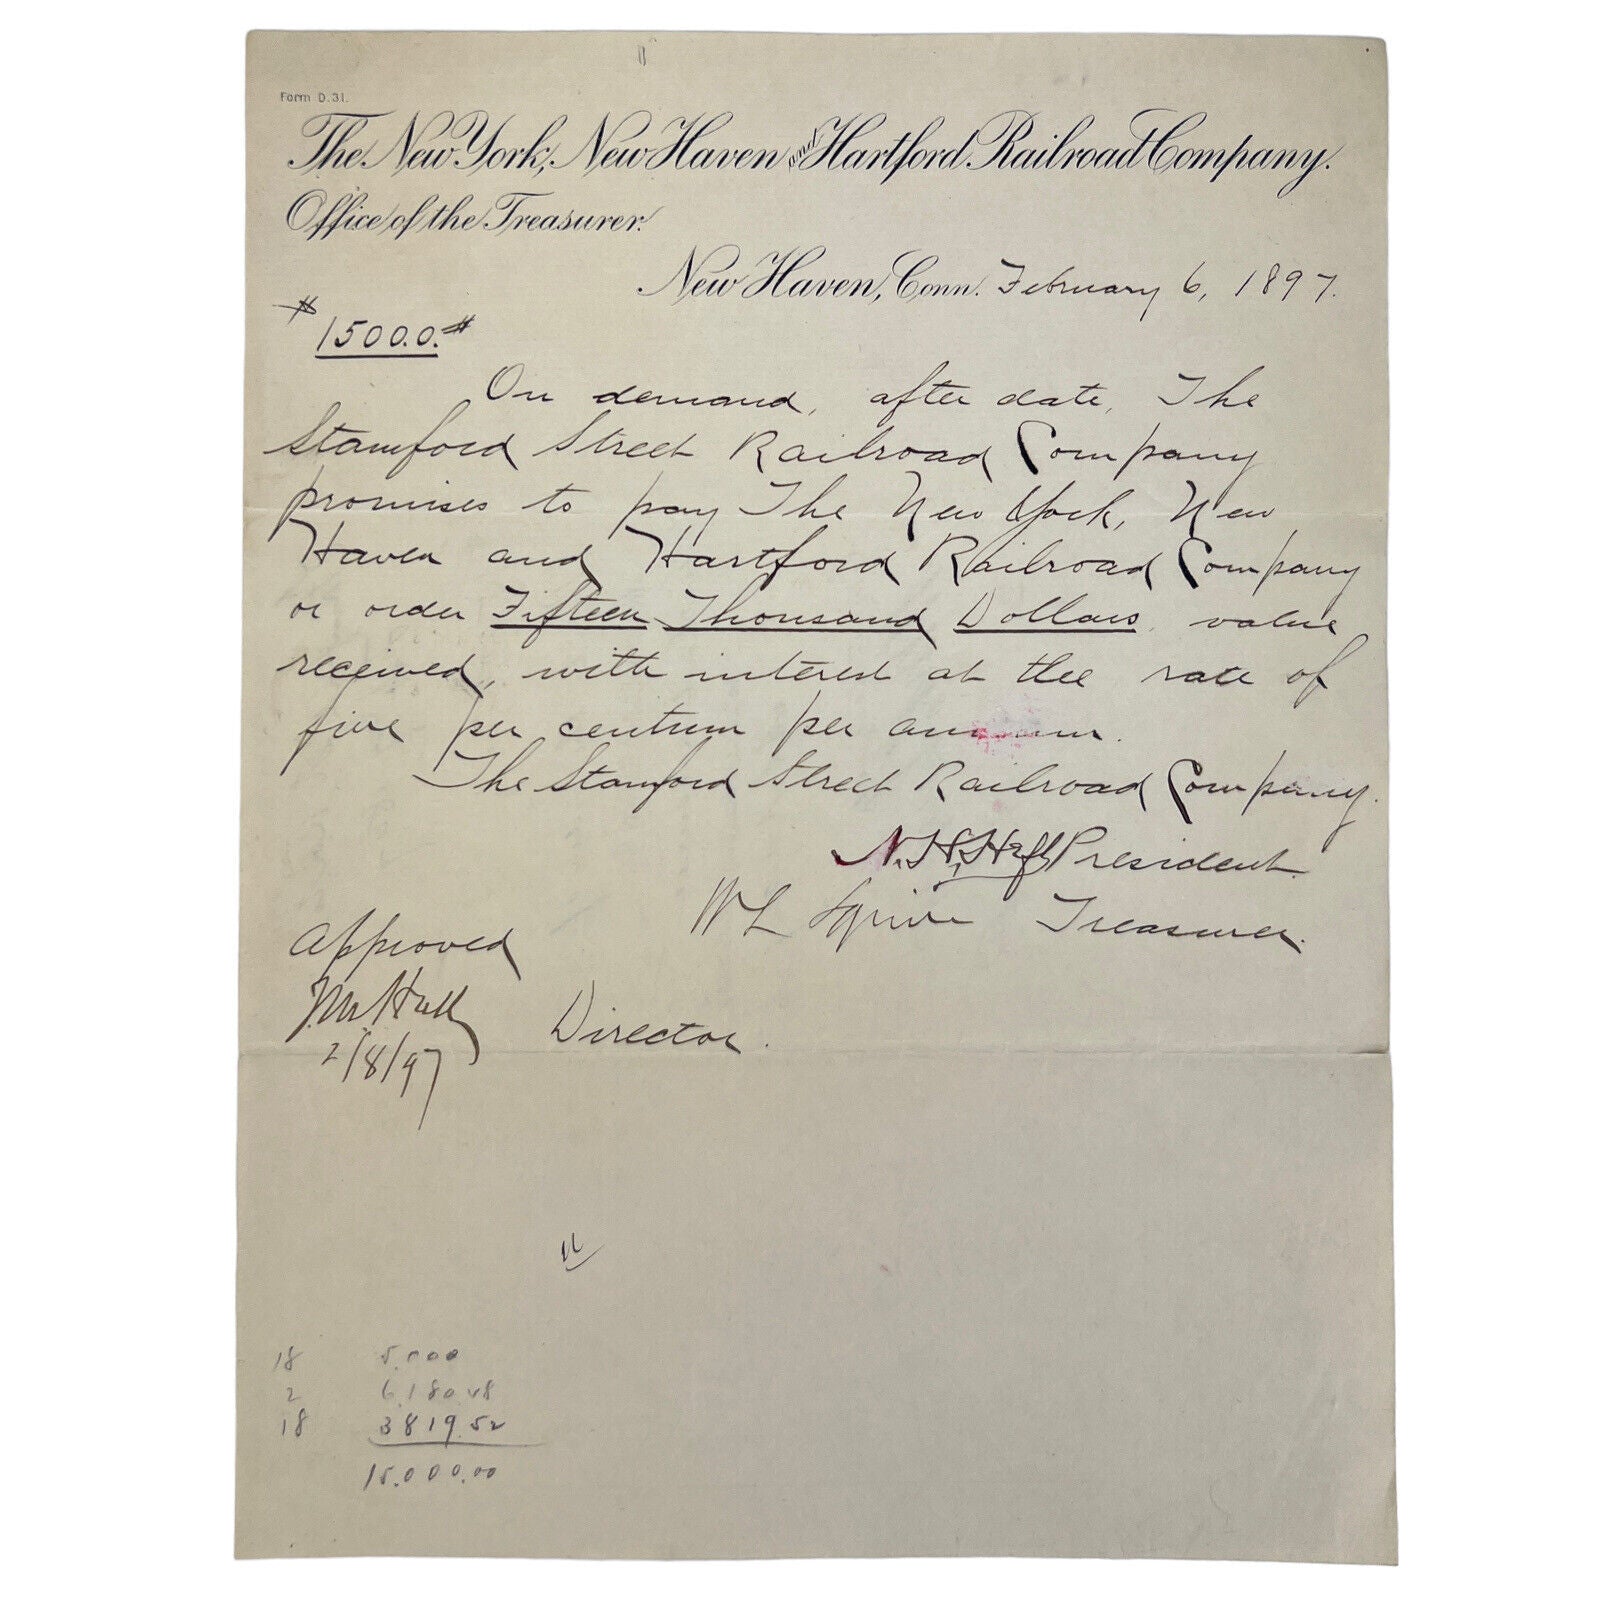 Form D.31.
The New York, New Haven and Hartford Railroad Company.
Office of the Treasurer.
New Haven, Conn. February 6, 1897.
#
15000.#
On demand, after date, The
Stamford Street Railroad Company
promises to pay The New York, New
Haven and Hartford Railroad Company
or order Fifteen Thousand Dollars, value
received, with interest at the rate of
five per centum per annum.
The Stamford Street Railroad Company.
N. H. Heft President.
W L Squire Treasurer.
Approved
J.M. Hall Director.
2/8/97
18 5.000
2 6180 48
18 3819.52
15.000.00